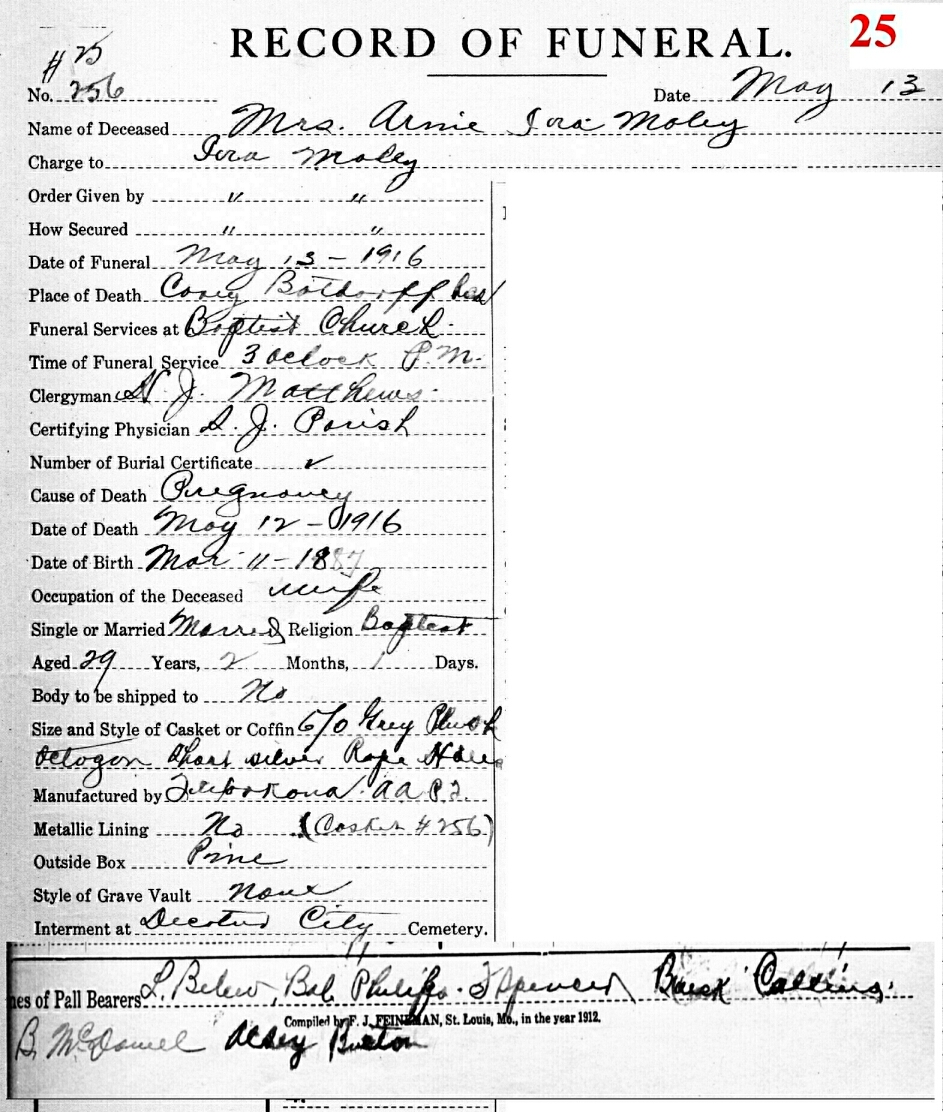 RECORD OF FUNERAL. 25
# 25
No. 256 Date May 13
Name of Deceased Mrs. Arnie Iora Moley
Charge to Iora Moley
Order Given by " "
How Secured " "
Date of Funeral May 13 - 1916
Place of Death Corey
Funeral Services at Baptist Church
Time of Funeral Service 3 oclock P.M.
Clergyman J. Matthews
Certifying Physician S. J. Parish
Number of Burial Certificate ✓
Cause of Death Pregnancy
Date of Death May 12 - 1916
Date of Birth Mar 11 - 1887
Occupation of the Deceased wife
Single or Married Married Religion Baptist
Aged 29 Years, 2 Months, 1 Days.
Body to be shipped to No
Size and Style of Casket or Coffin 6/0 Grey Plush
Octogon short silver Rope
Manufactured by
Metallic Lining No (Casket # 256)
Outside Box Pine
Style of Grave Vault None
Interment at Decatur City Cemetery.
nes of Pall Bearers L. Belew, Bob Philips. Spencer Collins.
Compiled by F. J. FEINEMAN, St. Louis, Mo., in the year 1912.
B. McDaniel Burton